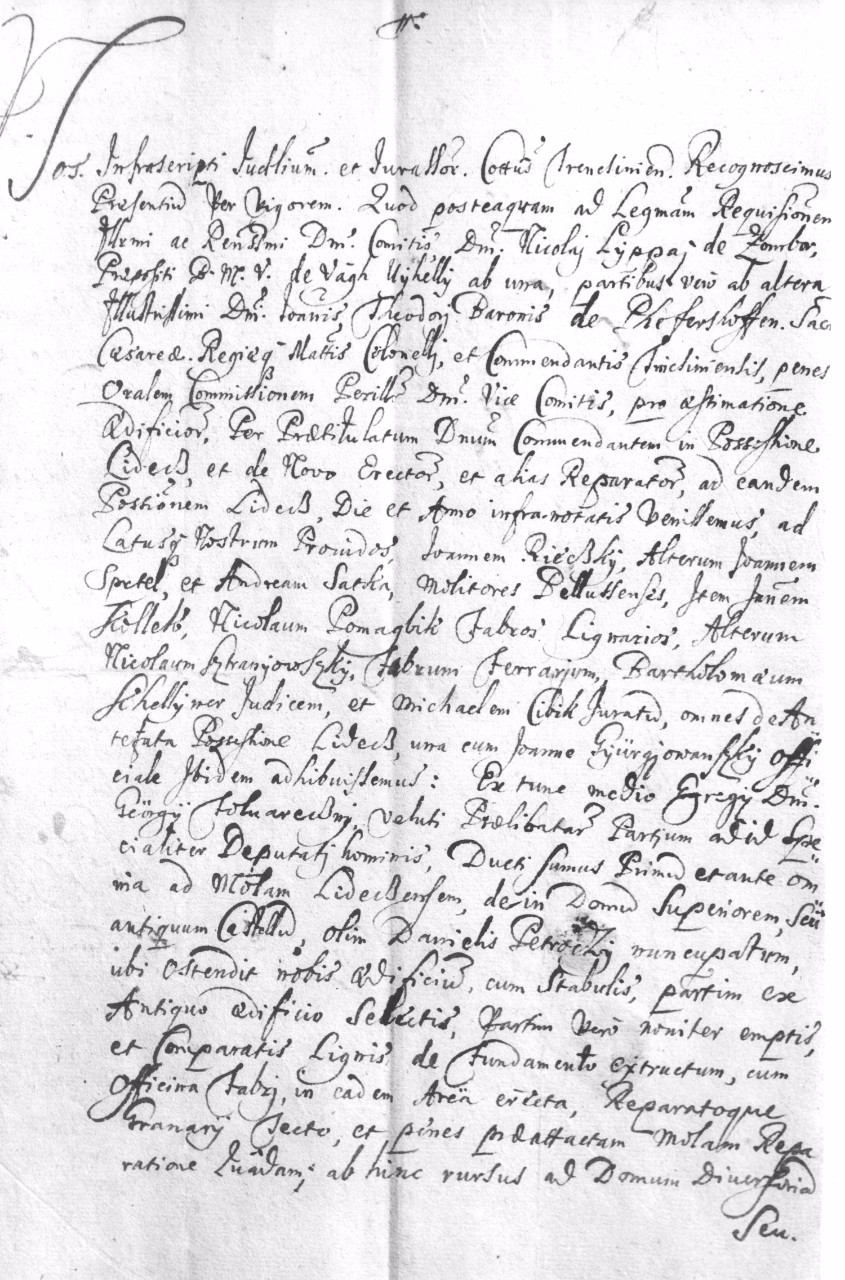 Nos. Infrascripti Judlium. et Jurassor. Cottus Trenchinien. Recognoscimus
Presentium Per Vigorem. Quod posteaquam ad Legmam Requisionem
Illrmi ac Rendssmi Dni. Comitis, Dni. Nicolaj Lyppaj de Zombor,
Prepositi B. M. V. de Vágh Ujhelly ab una, partibus verò ab altera
Illustrissimi Dni. Joannis, Theodorj Baronis de Phefershoffen. Sac
Cæsareæ. Regiæq Mattis Colonellj, et Commendantis Trinchiniensis, penes
Oralem Commissionem Perills Dni. Vice Comitis, pro æstimatione
Ædificior, Per Prætitulatum Dnum Commendantem in Possessione
Lidecß, et de Novo Erector, et alias Reparator, ad eandem
Possionem Lidecß, Die et Anno infra-notatis Venissemus, ad
Latusq Nostrum Providos Joannem Riecßky, Alterum Joannem
Spetel, et Andream Satka, Molitores Bellussenses, Item Janem
Kollets, Nicolaum Pomagbik Fabros Lignarios, Alterum
Nicolaum Sztranyowszky, Fabrum Ferrarium, Bartholomæum
Schellyner Judicem, et Michaelem Cibik Juratum, omnes de An
tefata Possessione Lidecß, una cum Joanne Gyürgyowanszky offi
ciale Ibidem adhibuissemus: Ex tunc medio Egregij Dni.
Geörgij Toluarecßnj, veluti Prælibatar Partium ad id Spe
cialiter Deputatj hominis, Ducti sumus Primum et ante om
nia ad Molam Lidecßensem, dein Domum Superiorem, Seü
antiquum Castellum, olim Danielis Petroczj nuncupatum,
ubi Ostendit nobis Ædificium, cum Stabulis, partim ex
Antiquo ædificio Selectis, Partim Verò noviter emptis,
et Comparatis Lignis de Fundamento extructum, cum
Officina Fabrj, in eadem Areä erecta, Reparatoque
Granarij Tecto, et penes præattactam Molam Repa
ratione Quâdam; ab hinc rursus ad Domum Diversoriam
Seu.